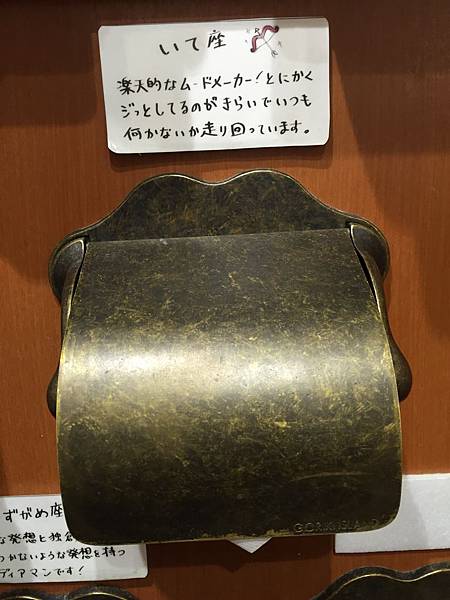 いて座
楽天的なムードメーカー！とにかく
ジっとしてるのがきらいでいつも
何かないか走り回っています。
GORIKI ISLAND
ずがめ座
な発想と独創
つかないような発想を持つ
ディアマンです！